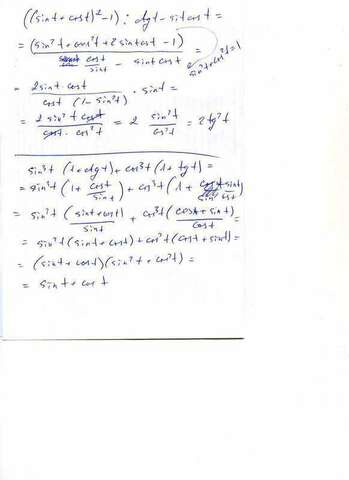 ((sint + cost)² - 1) : ctgt - sint cost =
= (sin²t + cos²t + 2 sint cost - 1) / (cost/sint - sint cost) = sin²t + cos²t = 1
= 2 sint · cost / cost (1 - sin²t) · sint =
= 2 sin²t cost / cost · cos²t = 2 sin²t / cos²t = 2 tg²t
sin³t (1 + ctgt) + cos³t (1 + tgt) =
= sin³t (1 + cost/sint) + cos³t (1 + sint/cost) =
= sin³t (sint + cost)/sint + cos³t (cost + sint)/cost =
= sin²t (sint + cost) + cos²t (cost + sint) =
= (sint + cost)(sin²t + cos²t) =
= sint + cost